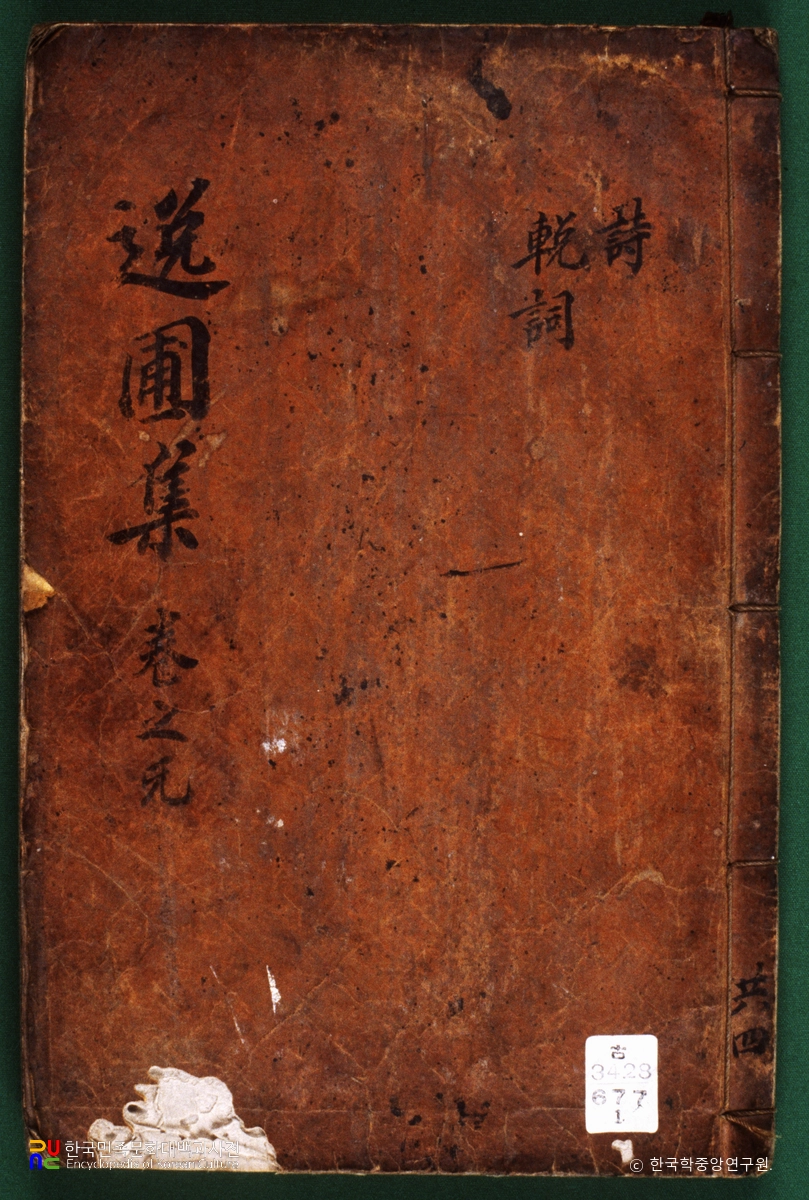 詩
輓詞
逸圃集 卷之元
共四
3428
677
1
한국민족문화대백과사전
Encyclopedia of Korean Culture
© 한국학중앙연구원